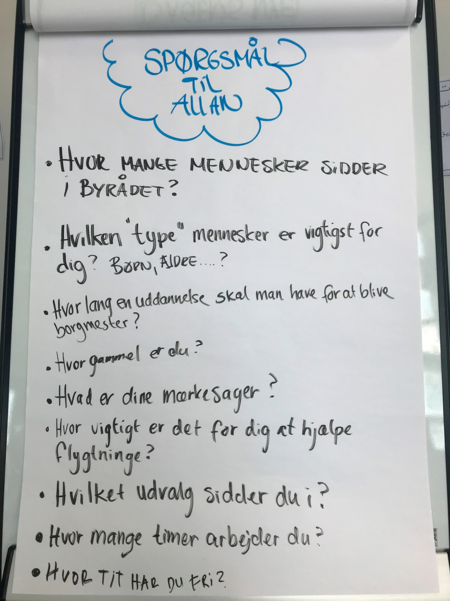 SPØRGSMÅL
TiL
ALLAN
• HVOR MANGE MENNESKER SiDDER
i BYRÅDET?
• Hvilken "type" mennesker er vigtigst for
dig? BØRN, ÆLDRE....?
• Hvor lang en uddannelse skal man have for at blive
borgmester?
• Hvor gammel er du?
• Hvad er dine mærkesager?
• Hvor vigtigt er det for dig at hjælpe
flygtninge?
• Hvilket udvalg sidder du i?
• Hvor mange timer arbejder du?
• HVOR TiT HAR DU FRi?